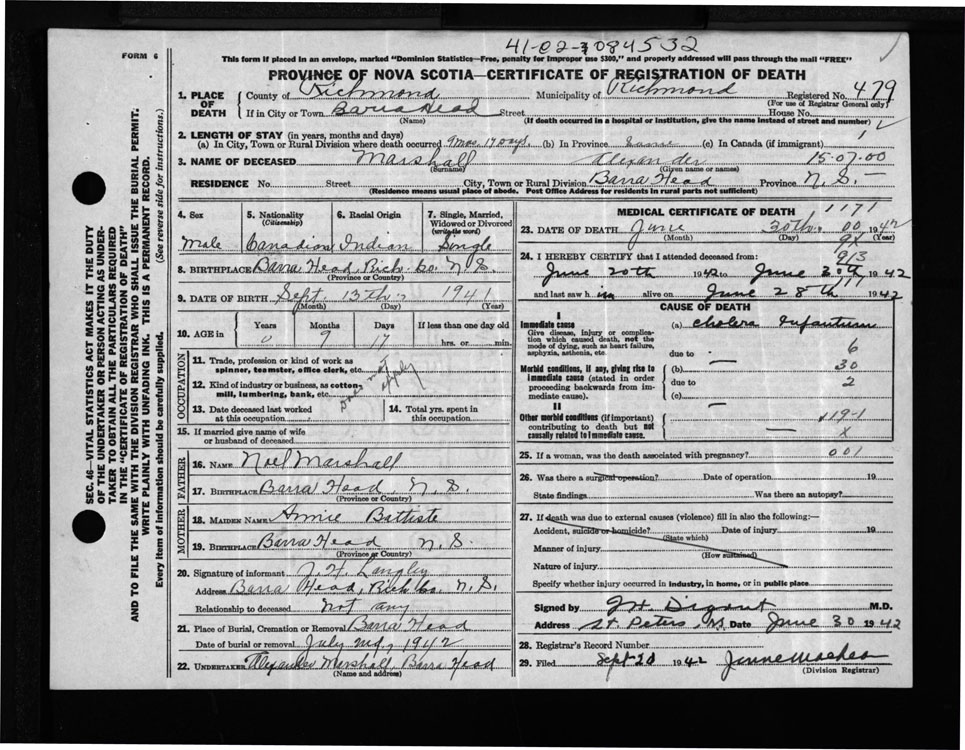 41-02-3084532
FORM 6
This form if placed in an envelope, marked "Dominion Statistics—Free, penalty for improper use $300," and properly addressed will pass through the mail "FREE"
PROVINCE OF NOVA SCOTIA—CERTIFICATE OF REGISTRATION OF DEATH
1. PLACE OF DEATH { County of Richmond Municipality of Richmond Registered No. 479
(For use of Registrar General only)
If in City or Town Barra Head Street House No.
(Name) (If death occurred in a hospital or institution, give the name instead of street and number)
2. LENGTH OF STAY (in years, months and days)
(a) In City, Town or Rural Division where death occurred 9 mos. 17 Days. (b) In Province Same (c) In Canada (if immigrant)
3. NAME OF DECEASED Marshall Alexander 15-07-00
(Surname) (Given name or names)
RESIDENCE No. Street City, Town or Rural Division Barra Head Province N. S. —
(Residence means usual place of abode. Post Office Address for residents in rural parts not sufficient)
4. Sex Male
5. Nationality (Citizenship) Canadian
6. Racial Origin Indian
7. Single, Married, Widowed or Divorced (write the word) Single
8. BIRTHPLACE Barra Head, Rich. Co. N. S.
(Province or Country)
9. DATE OF BIRTH Sept. 13th, 1941
(Month) (Day) (Year)
10. AGE in Years 0 Months 9 Days 17 If less than one day old hrs. or min.
OCCUPATION
11. Trade, profession or kind of work as spinner, teamster, office clerk, etc.
12. Kind of industry or business, as cotton mill, lumbering, bank, etc.
Does not apply
13. Date deceased last worked at this occupation
14. Total yrs. spent in this occupation
15. If married give name of wife or husband of deceased
FATHER
16. NAME Noel Marshall
17. BIRTHPLACE Barra Head, N. S.
(Province or Country)
MOTHER
18. MAIDEN NAME Annie Battiste
19. BIRTHPLACE Barra Head N. S.
(Province or Country)
20. Signature of informant J. H. Langley
Address Barra Head, Rich. Co. N. S.
Relationship to deceased not any
21. Place of Burial, Cremation or Removal Barra Head
Date of burial or removal July 2nd, 1942
22. UNDERTAKER Alexander Marshall, Barra Head
(Name and address)
MEDICAL CERTIFICATE OF DEATH 1171
23. DATE OF DEATH June 30th. 00 1942
(Month) (Day) (Year)
24. I HEREBY CERTIFY that I attended deceased from: 913
June 20th 1942 to June 30th 1942
and last saw him alive on June 28th 1942
CAUSE OF DEATH
I
Immediate cause
Give disease, injury or complication which caused death, not the mode of dying, such as heart failure, asphyxia, asthenia, etc.
(a) Cholera Infantum
due to 6
Morbid conditions, if any, giving rise to immediate cause (stated in order proceeding backwards from immediate cause).
(b) 30
due to 2
(c)
II
Other morbid conditions (if important) contributing to death but not causally related to immediate cause.
119-1
X
25. If a woman, was the death associated with pregnancy? 001
26. Was there a surgical operation? Date of operation 19
State findings Was there an autopsy?
27. If death was due to external causes (violence) fill in also the following:—
Accident, suicide or homicide? Date of injury 19
(State which)
Manner of injury
(How sustained)
Nature of injury
Specify whether injury occurred in industry, in home, or in public place
Signed by M.D.
Address St. Peters, NS Date June 30 1942
28. Registrar's Record Number
29. Filed Sept 20 1942
(Division Registrar)
SEC. 46—VITAL STATISTICS ACT MAKES IT THE DUTY
OF THE UNDERTAKER OR PERSON ACTING AS UNDERTAKER TO OBTAIN ALL THE PARTICULARS REQUIRED
IN THE "CERTIFICATE OF REGISTRATION OF DEATH"
AND TO FILE THE SAME WITH THE DIVISION REGISTRAR WHO SHALL ISSUE THE BURIAL PERMIT.
WRITE PLAINLY WITH UNFADING INK. THIS IS A PERMANENT RECORD.
Every item of information should be carefully supplied. (See reverse side for instructions.)